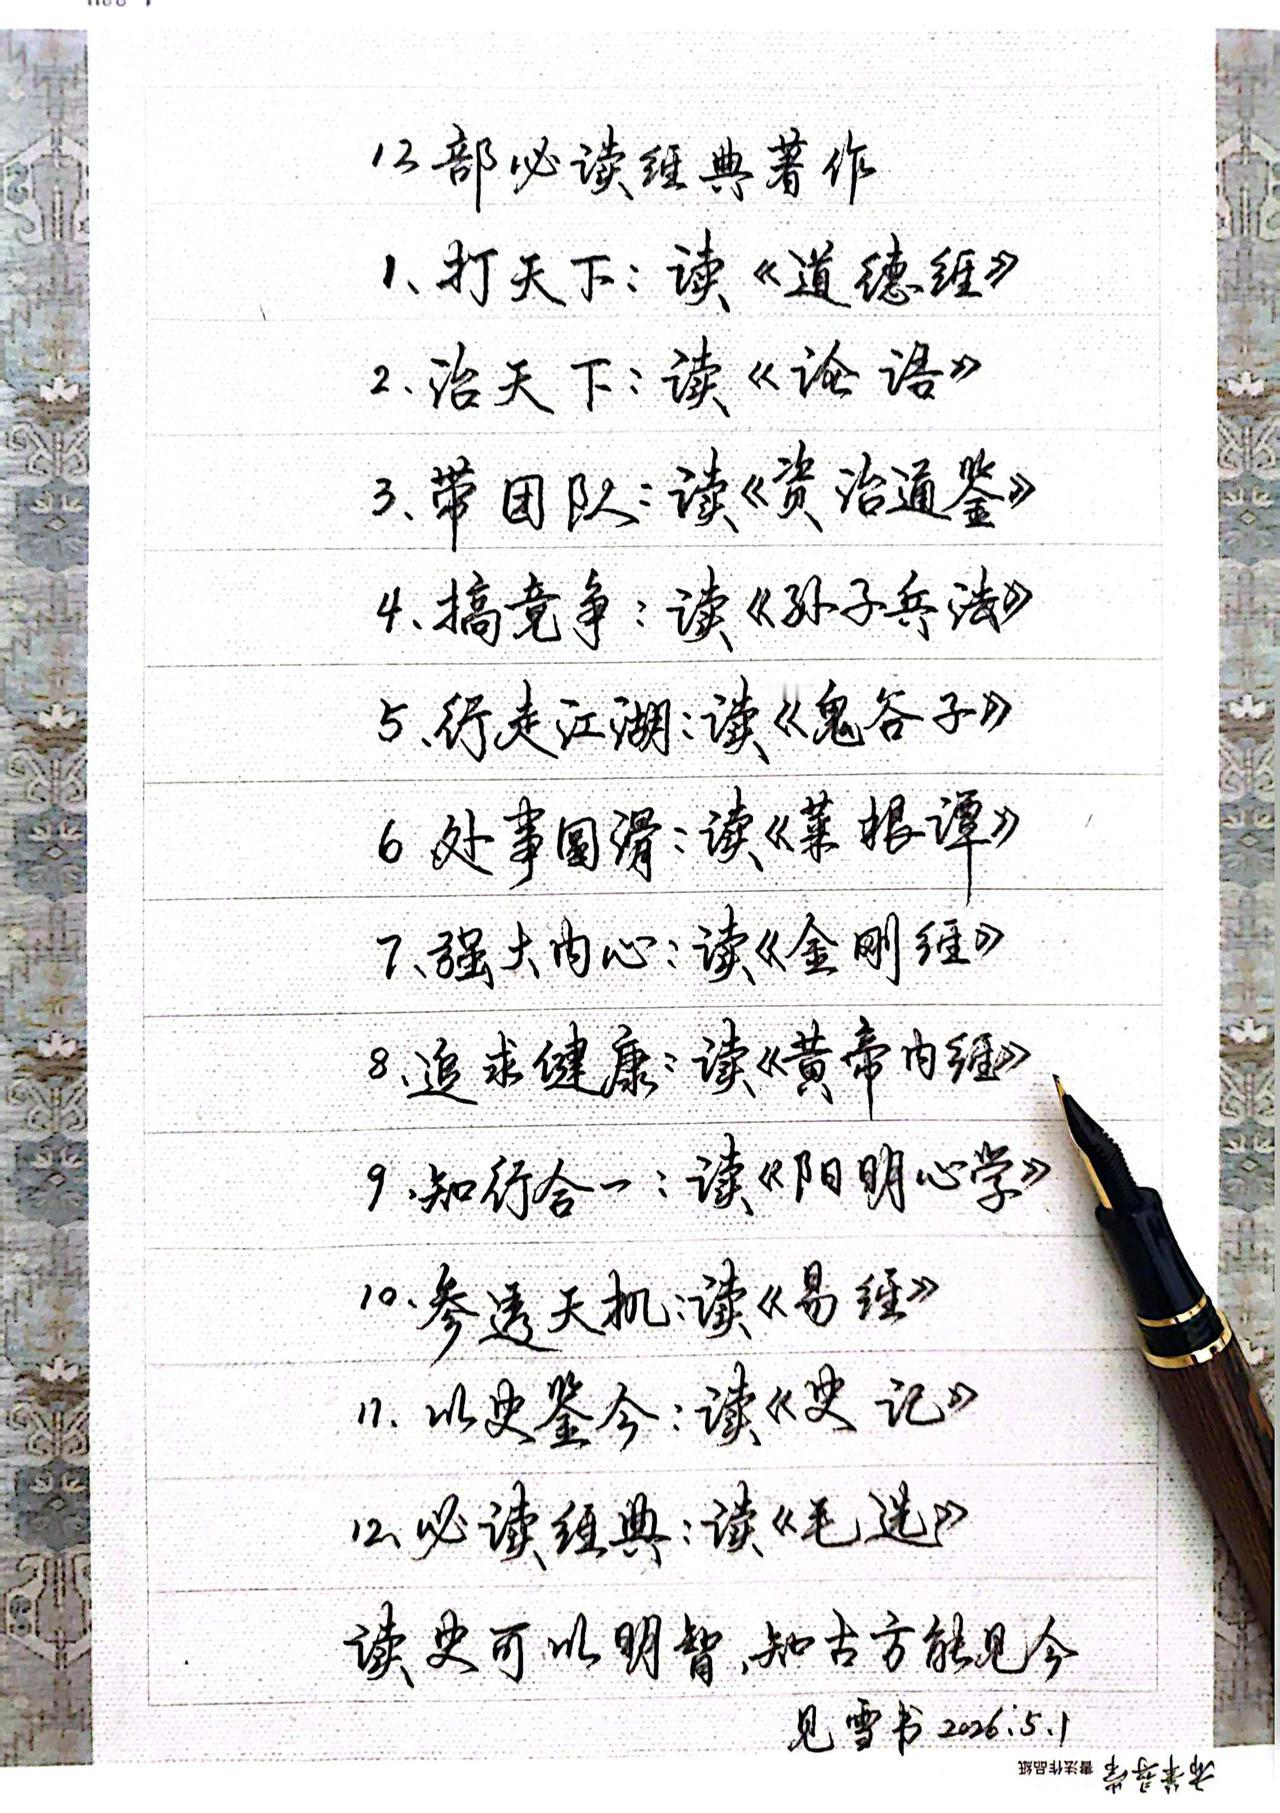 12部必读经典著作
1、打天下：读《道德经》
2、治天下：读《论语》
3、带团队：读《资治通鉴》
4、搞竞争：读《孙子兵法》
5、行走江湖：读《鬼谷子》
6 处事圆滑：读《菜根谭》
7、强大内心：读《金刚经》
8、追求健康：读《黄帝内经》
9、知行合一：读《阳明心学》
10、参透天机：读《易经》
11、以史鉴今：读《史记》
12、必读经典：读《毛选》
读史可以明智，知古方能见今
见雪书 2026.5.1
書法作品紙